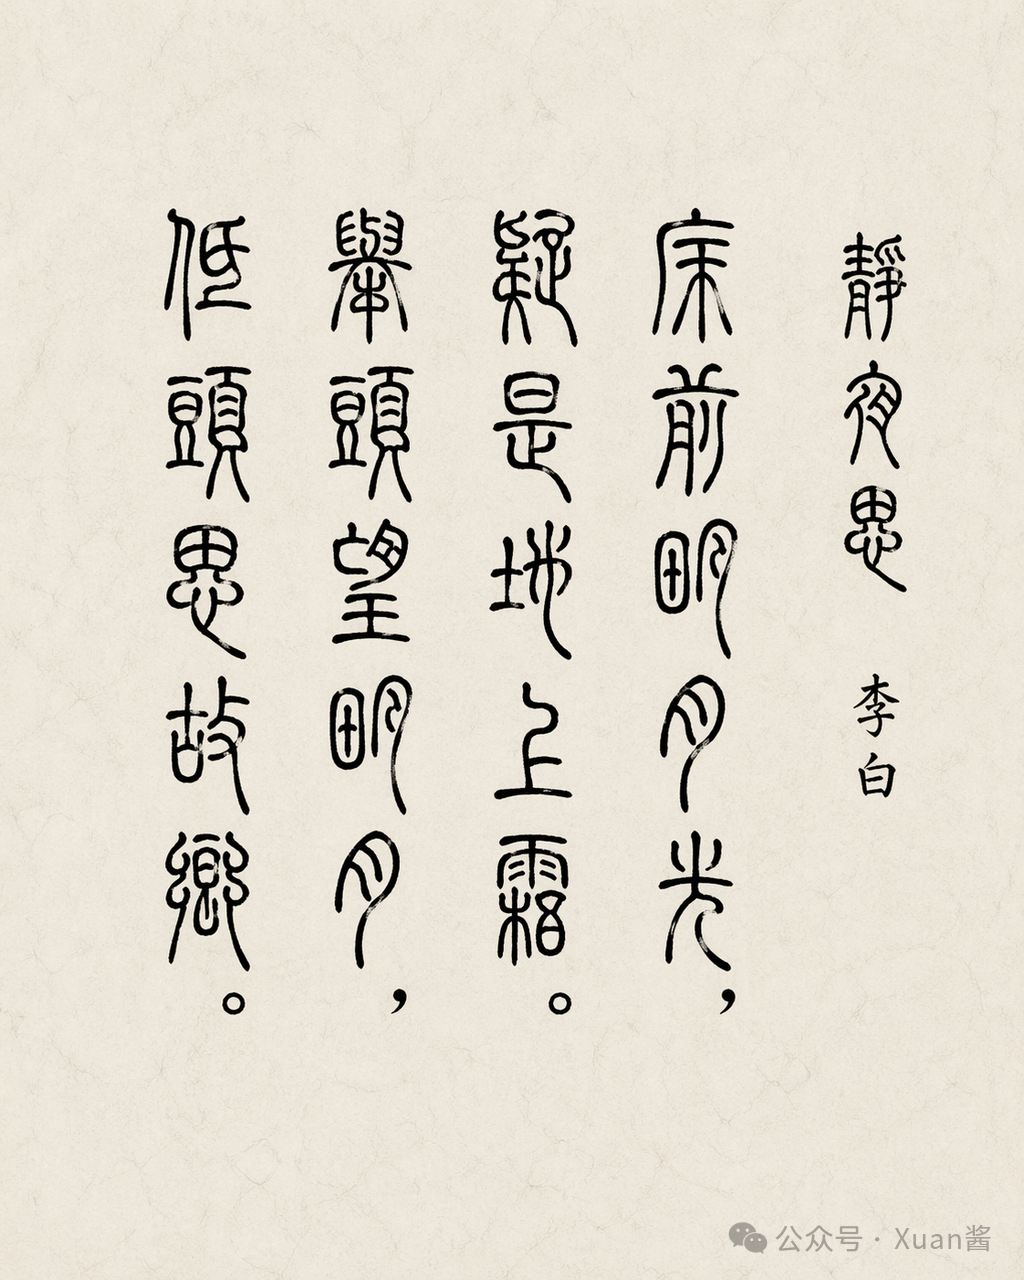 靜夜思
李白
床前明月光，
疑是地上霜。
舉頭望明月，
低頭思故鄉。
公众号 · Xuan酱